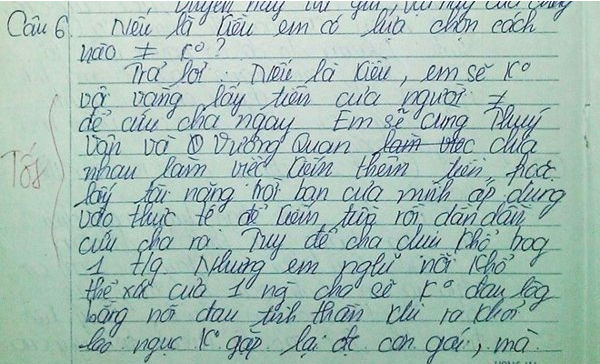 Câu 6. Nếu là Kiều em có lựa chọn cách
nào ≠ k°?
Trả lời: Nếu là Kiều, em sẽ k°
vội vàng lấy tiền của người ≠
để cứu cha ngay. Em sẽ cùng Thuý
Vân và Vương Quan làm việc chia
nhau làm việc kiếm thêm tiền hoặc
lấy tài năng trời ban của mình áp dụng
vào thực tế để kiếm tiền rồi dần dần
cứu cha ra. Tuy để cha chịu khổ trog
1 t/g Nhưng em nghĩ nỗi khổ
thể xác của 1 ng cha sẽ k° đau lòg
bằng nỗi đau tinh thần khi ra khỏi
lao ngục k° gặp lại đc con gái, mà
Tốt